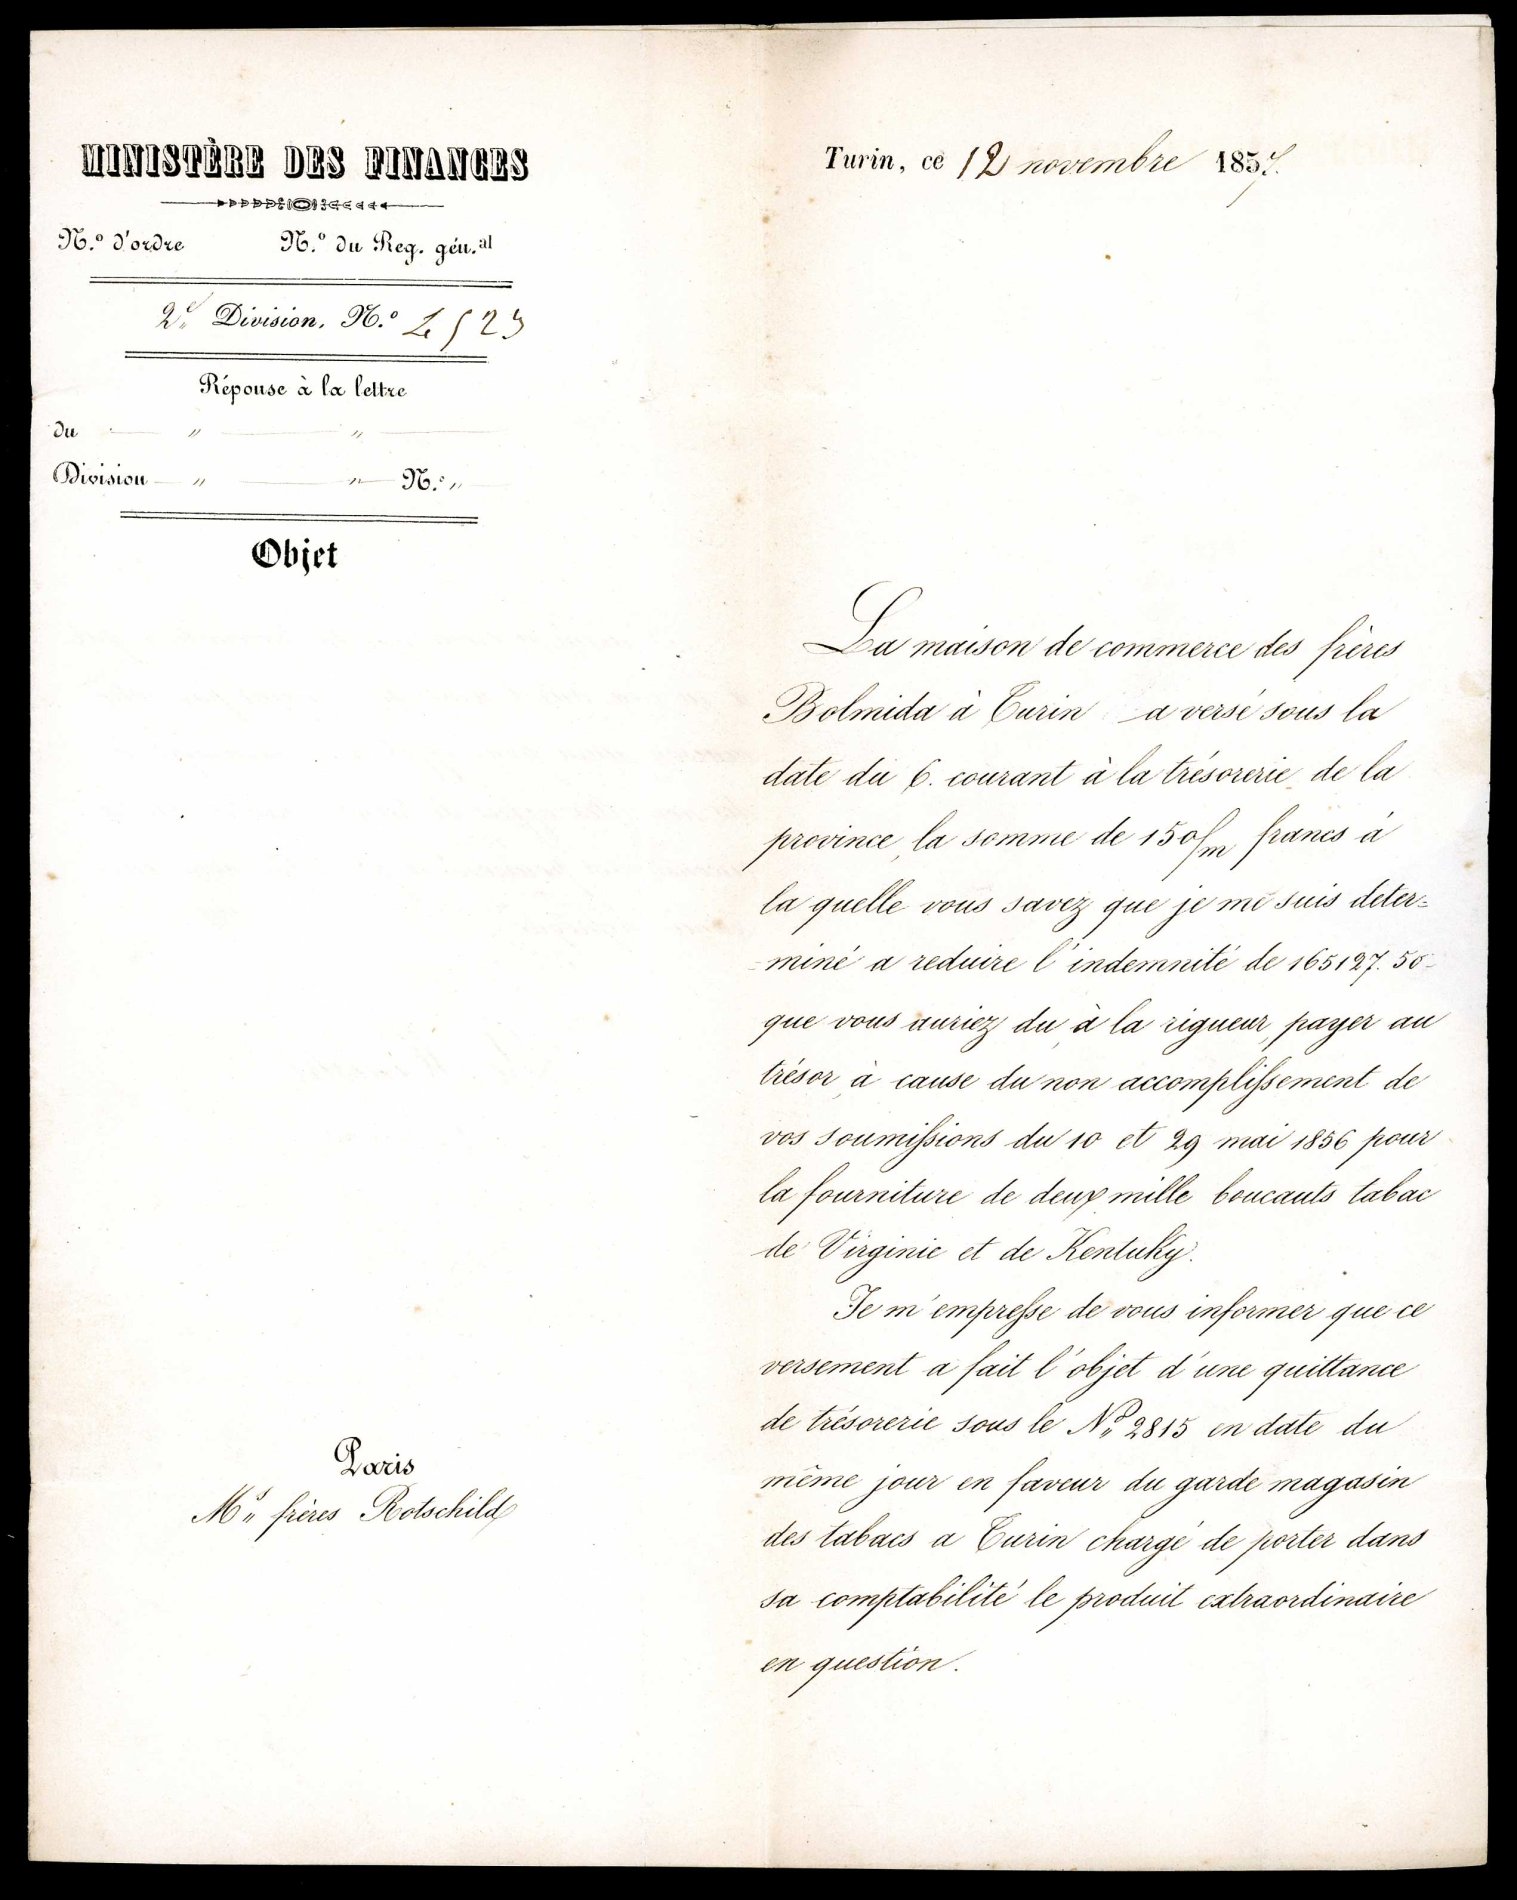 MINISTÈRE DES FINANCES
N.º d'ordre N.º du Reg. gén.al
2e Division. N.º 4523
Réponse à la lettre
du " "
Division " " N.º "
Objet
Paris
Mrs frères Rotschild
Turin, ce 12 novembre 1857.
La maison de commerce des frères
Bolmida à Turin a versé sous la
date du 6. courant à la trésorerie de la
province, la somme de 150/m francs à
la quelle vous savez que je me suis deter=
=miné a reduire l'indemnité de 165127.50
que vous auriez du, à la rigueur, payer au
trésor, à cause du non accomplissement de
vos soumissions du 10 et 29 mai 1856 pour
la fourniture de deux mille boucauts tabac
de Virginie et de Kentuky.
Je m'empresse de vous informer que ce
versement a fait l'objet d'une quittance
de trésorerie sous le No 2815 en date du
même jour en faveur du garde magasin
des tabacs a Turin chargé de porter dans
sa comptabilité le produit extraordinaire
en question.